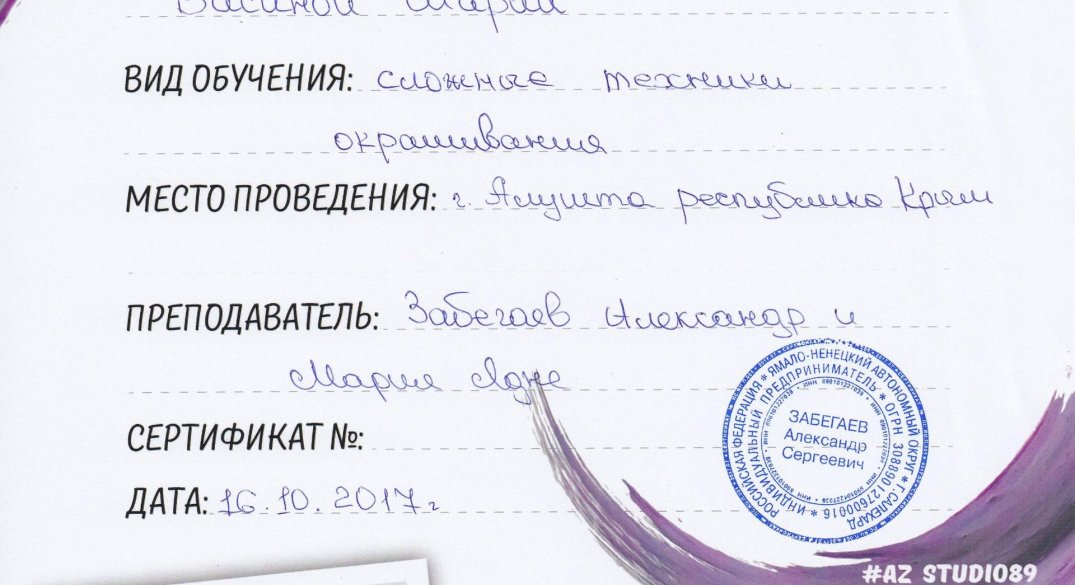 Марии
ВИД ОБУЧЕНИЯ: сложные техники
окрашивания
МЕСТО ПРОВЕДЕНИЯ: г. Алушта республика Крым
ПРЕПОДАВАТЕЛЬ: Забегаев Александр и
Мария Ядне
СЕРТИФИКАТ №:
ДАТА: 16.10.2017г
РОССИЙСКАЯ ФЕДЕРАЦИЯ * ЯМАЛО-НЕНЕЦКИЙ АВТОНОМНЫЙ ОКРУГ * Г.САЛЕХАРД
* ИНДИВИДУАЛЬНЫЙ ПРЕДПРИНИМАТЕЛЬ * ОГРН 308890127600016
ЗАБЕГАЕВ
Александр
Сергеевич
#AZ STUDIO89